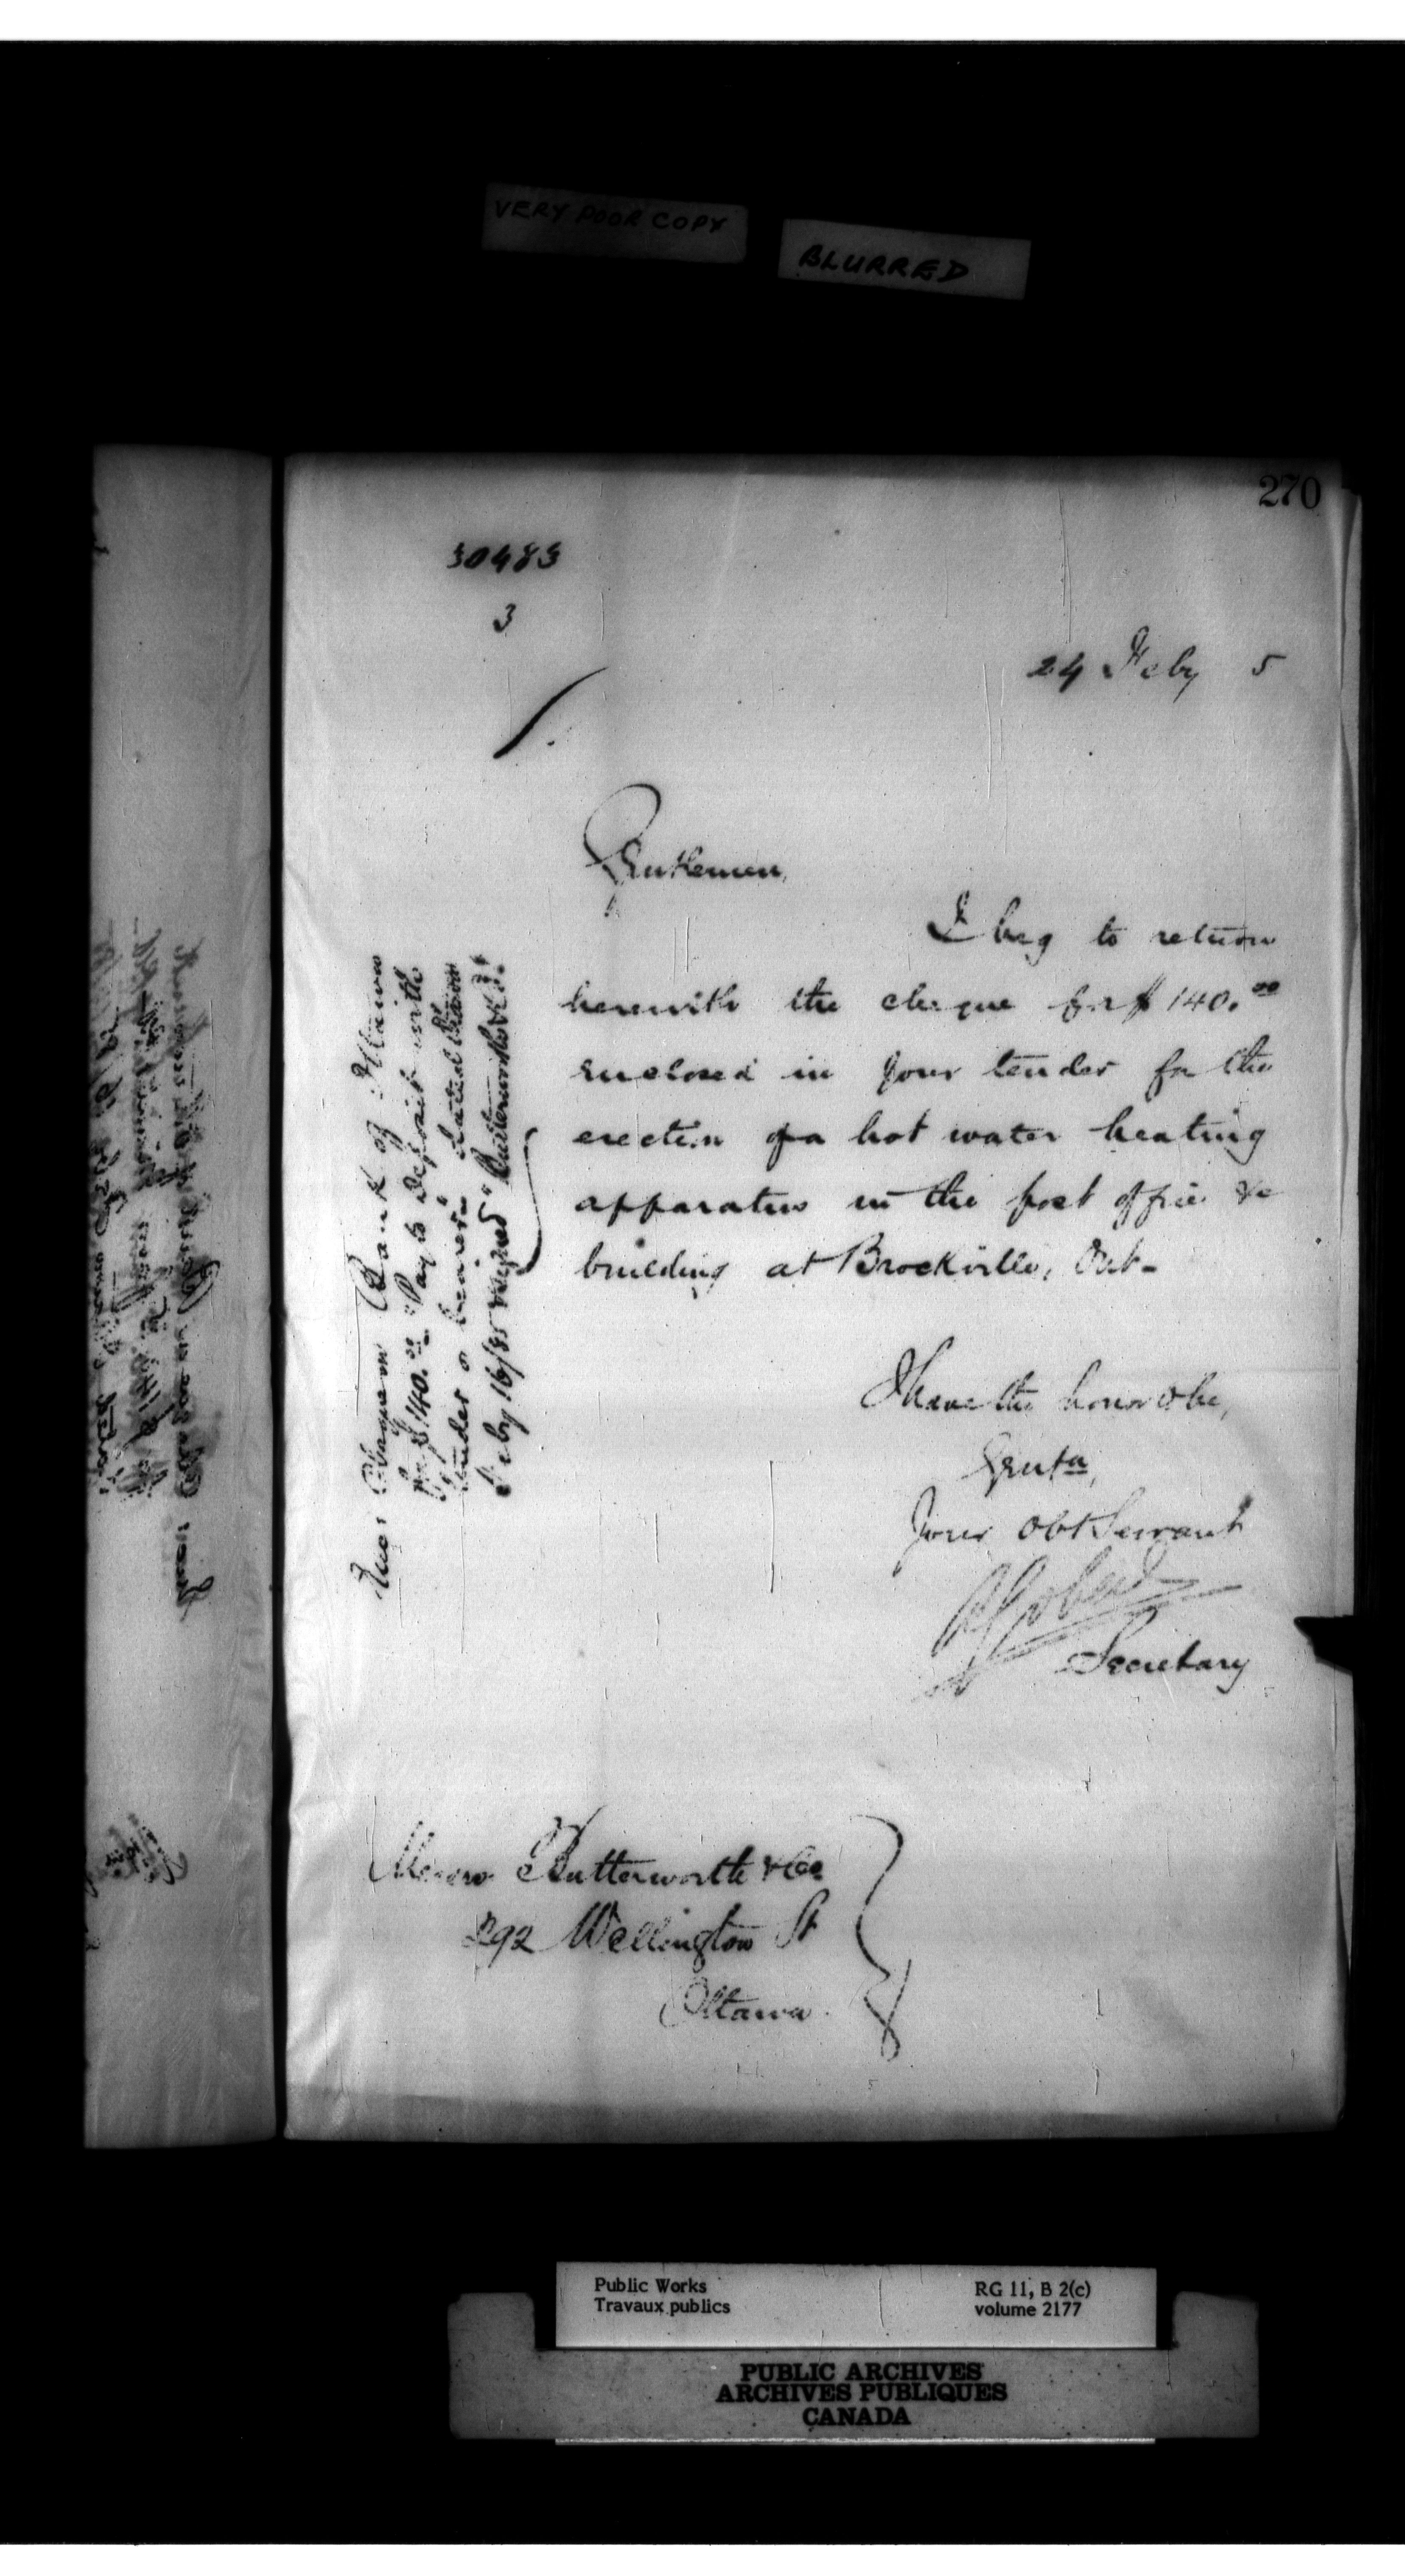 VERY POOR COPY
BLURRED
270
30483
3
24 Feby 5
Gentlemen,
I beg to return
herewith the cheque for $140.00
enclosed in your tender for the
erection of a hot water heating
apparatus in the post office &c
building at Brockville, Ont-
Encl Cheque on Bank of Ottawa
for $140.00 "Pay to deposit with
tender or bearer"
Feby 16/85 signed "Butterworth & Co"
I have the honor to be,
Gentn,
Your Obt Servant
Gobeil
Secretary
Messrs Butterworth & Co
292 Wellington St
Ottawa.
Public Works
Travaux publics
RG 11, B 2(c)
volume 2177
PUBLIC ARCHIVES
ARCHIVES PUBLIQUES
CANADA